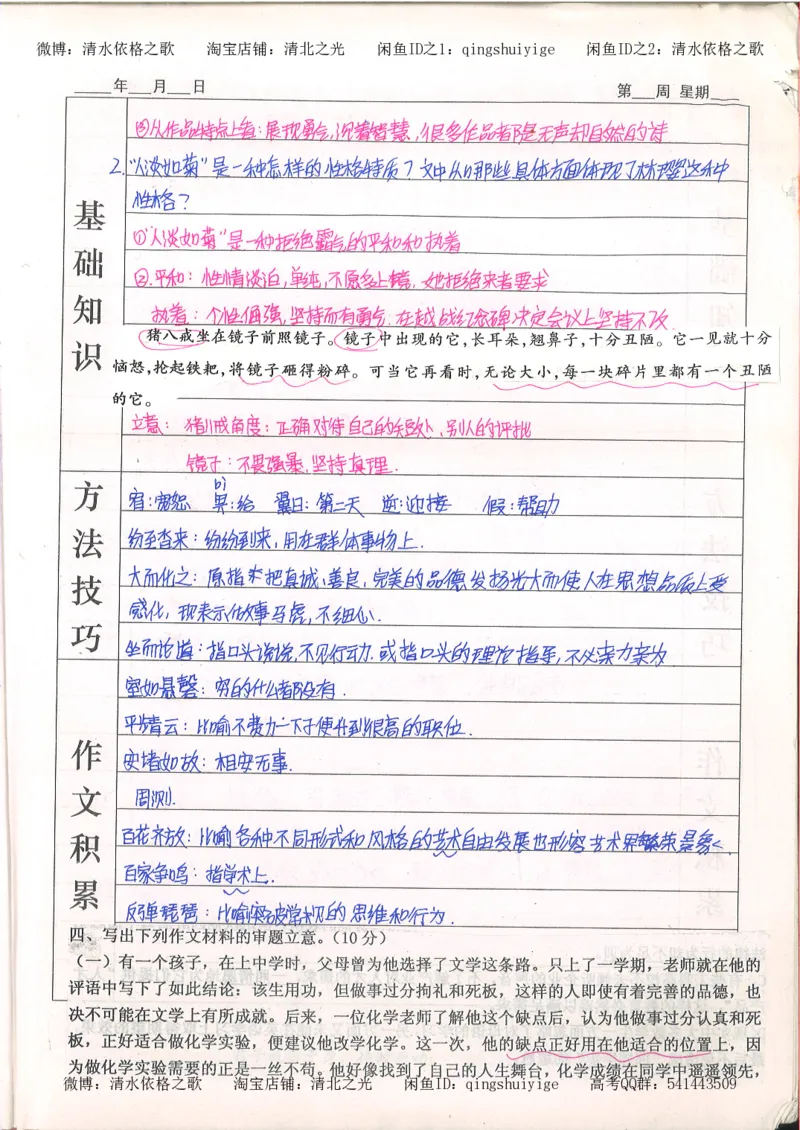 微博：清水依格之歌 淘宝店铺：清北之光 闲鱼ID之1：qingshuiyige 闲鱼ID之2：清水依格之歌
年 月 日 第 周 星期
③从作品特点上看：展现勇气，沉着智慧，很多作品者都是无声却自然的诗
2.“人淡如菊”是一种怎样的性格特质？文中从哪些具体方面体现了林璎这种
性格？
①“人淡如菊”是一种拒绝霸气的平和和执着
②.平和：性情淡泊，单纯，不愿多上镜，她拒绝来者要求
执着：个性倔强，坚持而有勇气，在越战纪念碑决定会议上坚持不改.
基础知识
猪八戒坐在镜子前照镜子。镜子中出现的它，长耳朵，翘鼻子，十分丑陋。它一见就十分
恼怒，抡起铁耙，将镜子砸得粉碎。可当它再看时，无论大小，每一块碎片里都有一个丑陋
的它。
立意：猪八戒角度：正确对待自己的短处、别人的评批
镜子：不畏强暴，坚持真理.
方法技巧
宥：宽恕 畀：给 翼日：第二天 逆：迎接 假：帮助
bì
纷至沓来：纷纷到来，用在群体事物上.
大而化之：原指把真诚、善良，完美的品德发扬光大而使人在思想品质上受
感化，现表示做事马虎，不细心.
坐而论道：指口头说说，不见行动.或指口头的理论指导，不必亲力亲为
室如悬磬：穷的什么都没有.
平步青云：比喻不费力一下子便升到很高的职位.
安堵如故：相安无事.
周测.
作文积累
百花齐放：比喻各种不同形式和风格的艺术自由发展也形容艺术界繁荣景象.
百家争鸣：指学术上.
反弹琵琶：比喻突破常规的思维和行为.
四、写出下列作文材料的审题立意。（10分）
（一）有一个孩子，在上中学时，父母曾为他选择了文学这条路。只上了一学期，老师就在他的
评语中写下了如此结论：该生用功，但做事过分拘礼和死板，这样的人即使有着完善的品德，也
决不可能在文学上有所成就。后来，一位化学老师了解他这个缺点后，认为他做事过分认真和死
板，正好适合做化学实验，便建议他改学化学。这一次，他的缺点正好用在他适合的位置上，因
为做化学实验需要的正是一丝不苟。他好像找到了自己的人生舞台，化学成绩在同学中遥遥领先，
微博：清水依格之歌 淘宝店铺：清北之光 闲鱼ID：qingshuiyige 高考QQ群：541443509